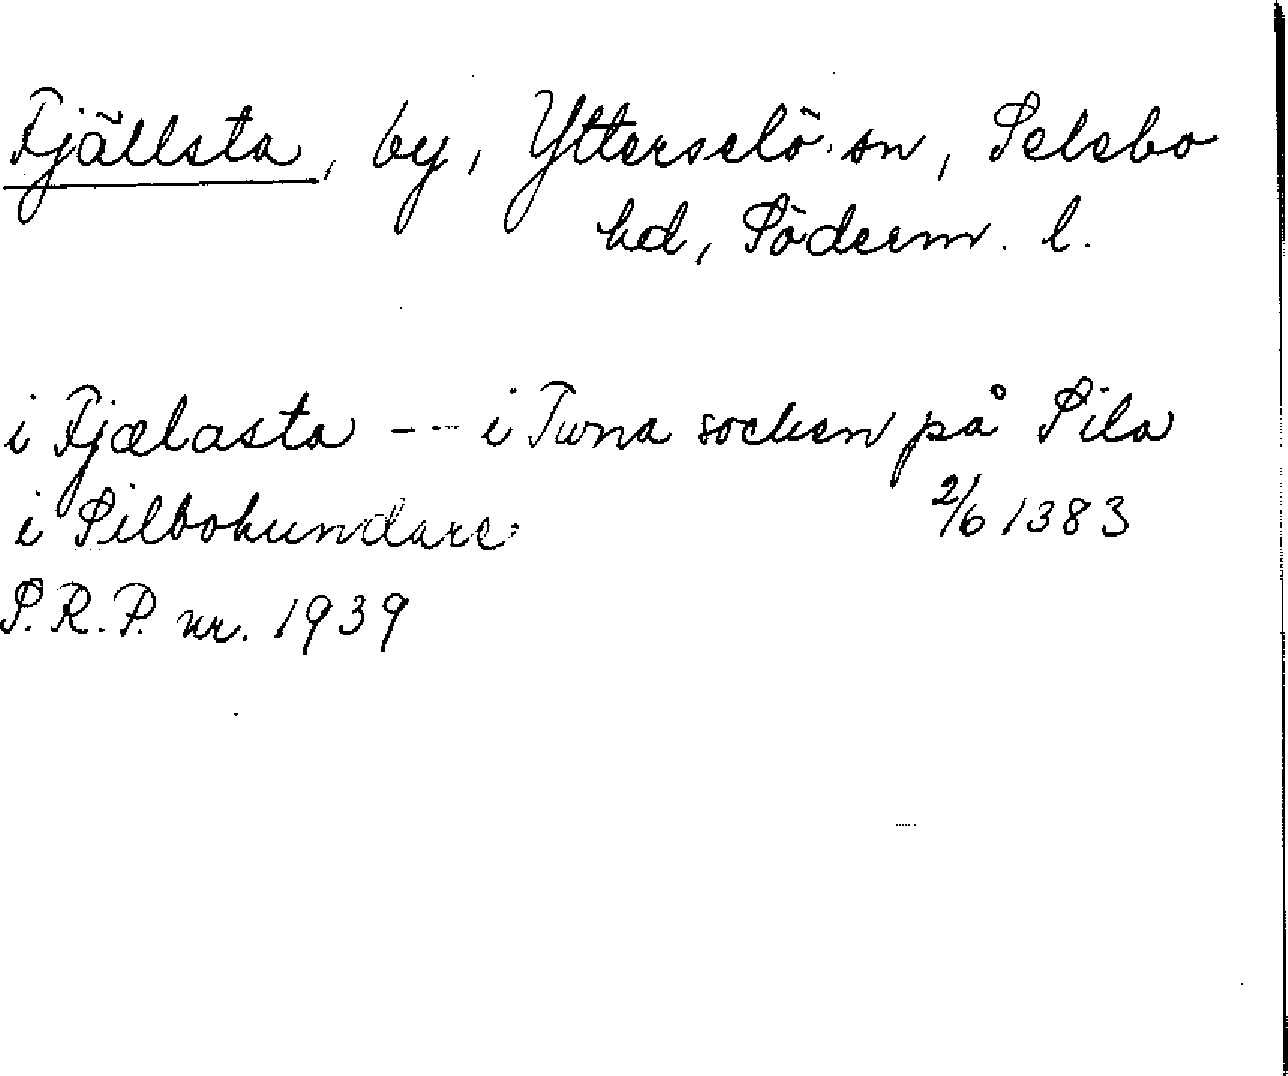 Fjällsta, by, Ytterselö sn, Selebo
hd, Söderm. l.
i Fjælasta -- i Tuna socken på Sila
i Silbohundare
2/6 1383
S.R.P. nr. 1939